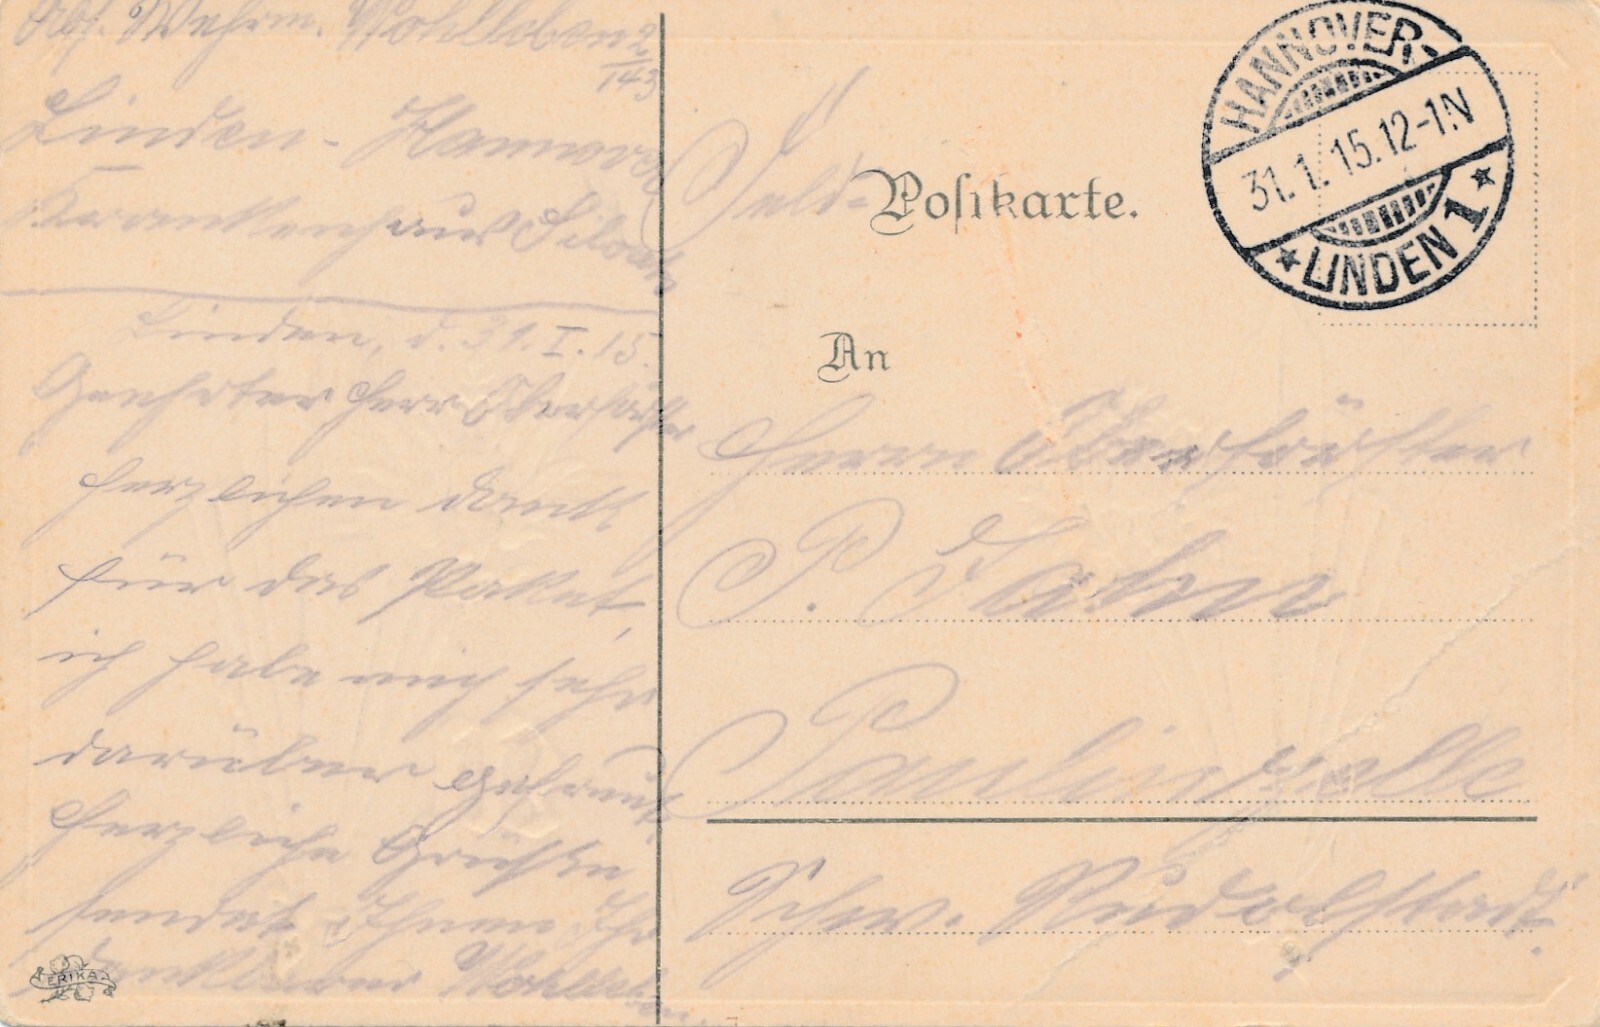 Abs. Wehrm. Wohlleben 2/143
Linden - Hannover
Krankenhaus Siloah
Linden, d. 31. I. 15.
Geehrter Herr Oberförster
herzlichen Dank
für das Paket,
ich habe mich sehr
darüber gefreut
Herzliche Grüße
sendet Ihnen Ihr
dankbarer Wohlleben
ERIKA
Feld-
Postkarte.
HANNOVER-
31.1.15.12-1N
*LINDEN 1*
An
Herrn Oberförster
P. Jahn
Paulinzelle
Schw. Rudolstadt.